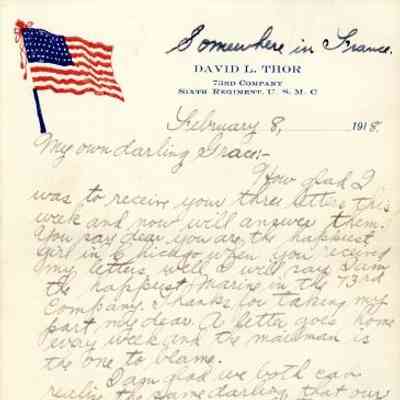 Somewhere in France.
DAVID L. THOR
73RD COMPANY
SIXTH REGIMENT, U. S. M. C
February 8, 1918.
My own darling Grace:-
How glad I
was to receive your three letters this
week and now will answer them.
You say dear you are the happiest
girl in Chicago when you received
my letters, well I will say I am
the happiest Marine in the 73rd
Company. Thanks for taking my
part my dear. A letter goes home
every week and the mailman is
the one to blame.
I am glad we both can
realize the same darling that our